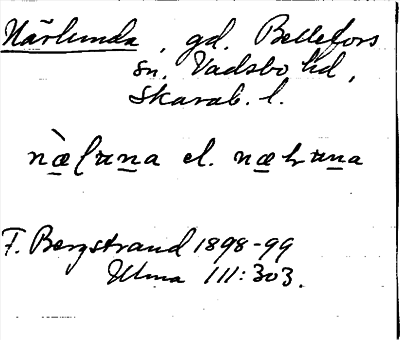 Närlunda, gd. Bellefors
sn. Vadsbo hd,
Skarab. l.
el.
F. Bergstrand 1898-99
Ulma 111:303.